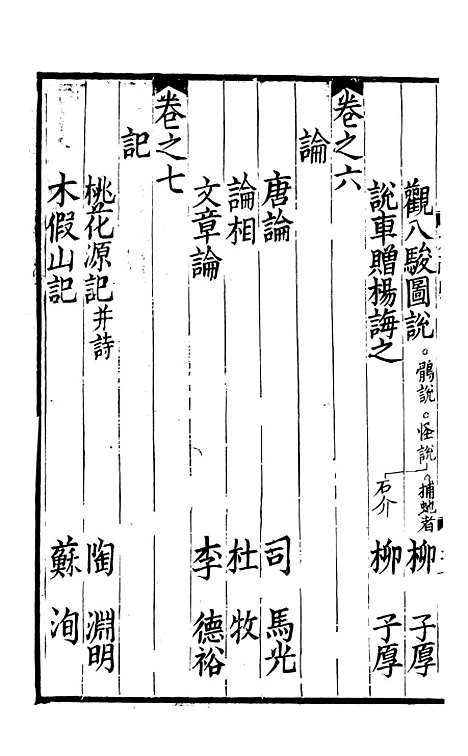 觀八駿圖說。鶻說。怪說。捕蛇者 柳子厚
說車贈楊誨之 石介 柳子厚
卷之六
論
唐論 司馬光
論相 杜牧
文章論 李德裕
卷之七
記
桃花源記并詩 陶淵明
木假山記 蘇洵